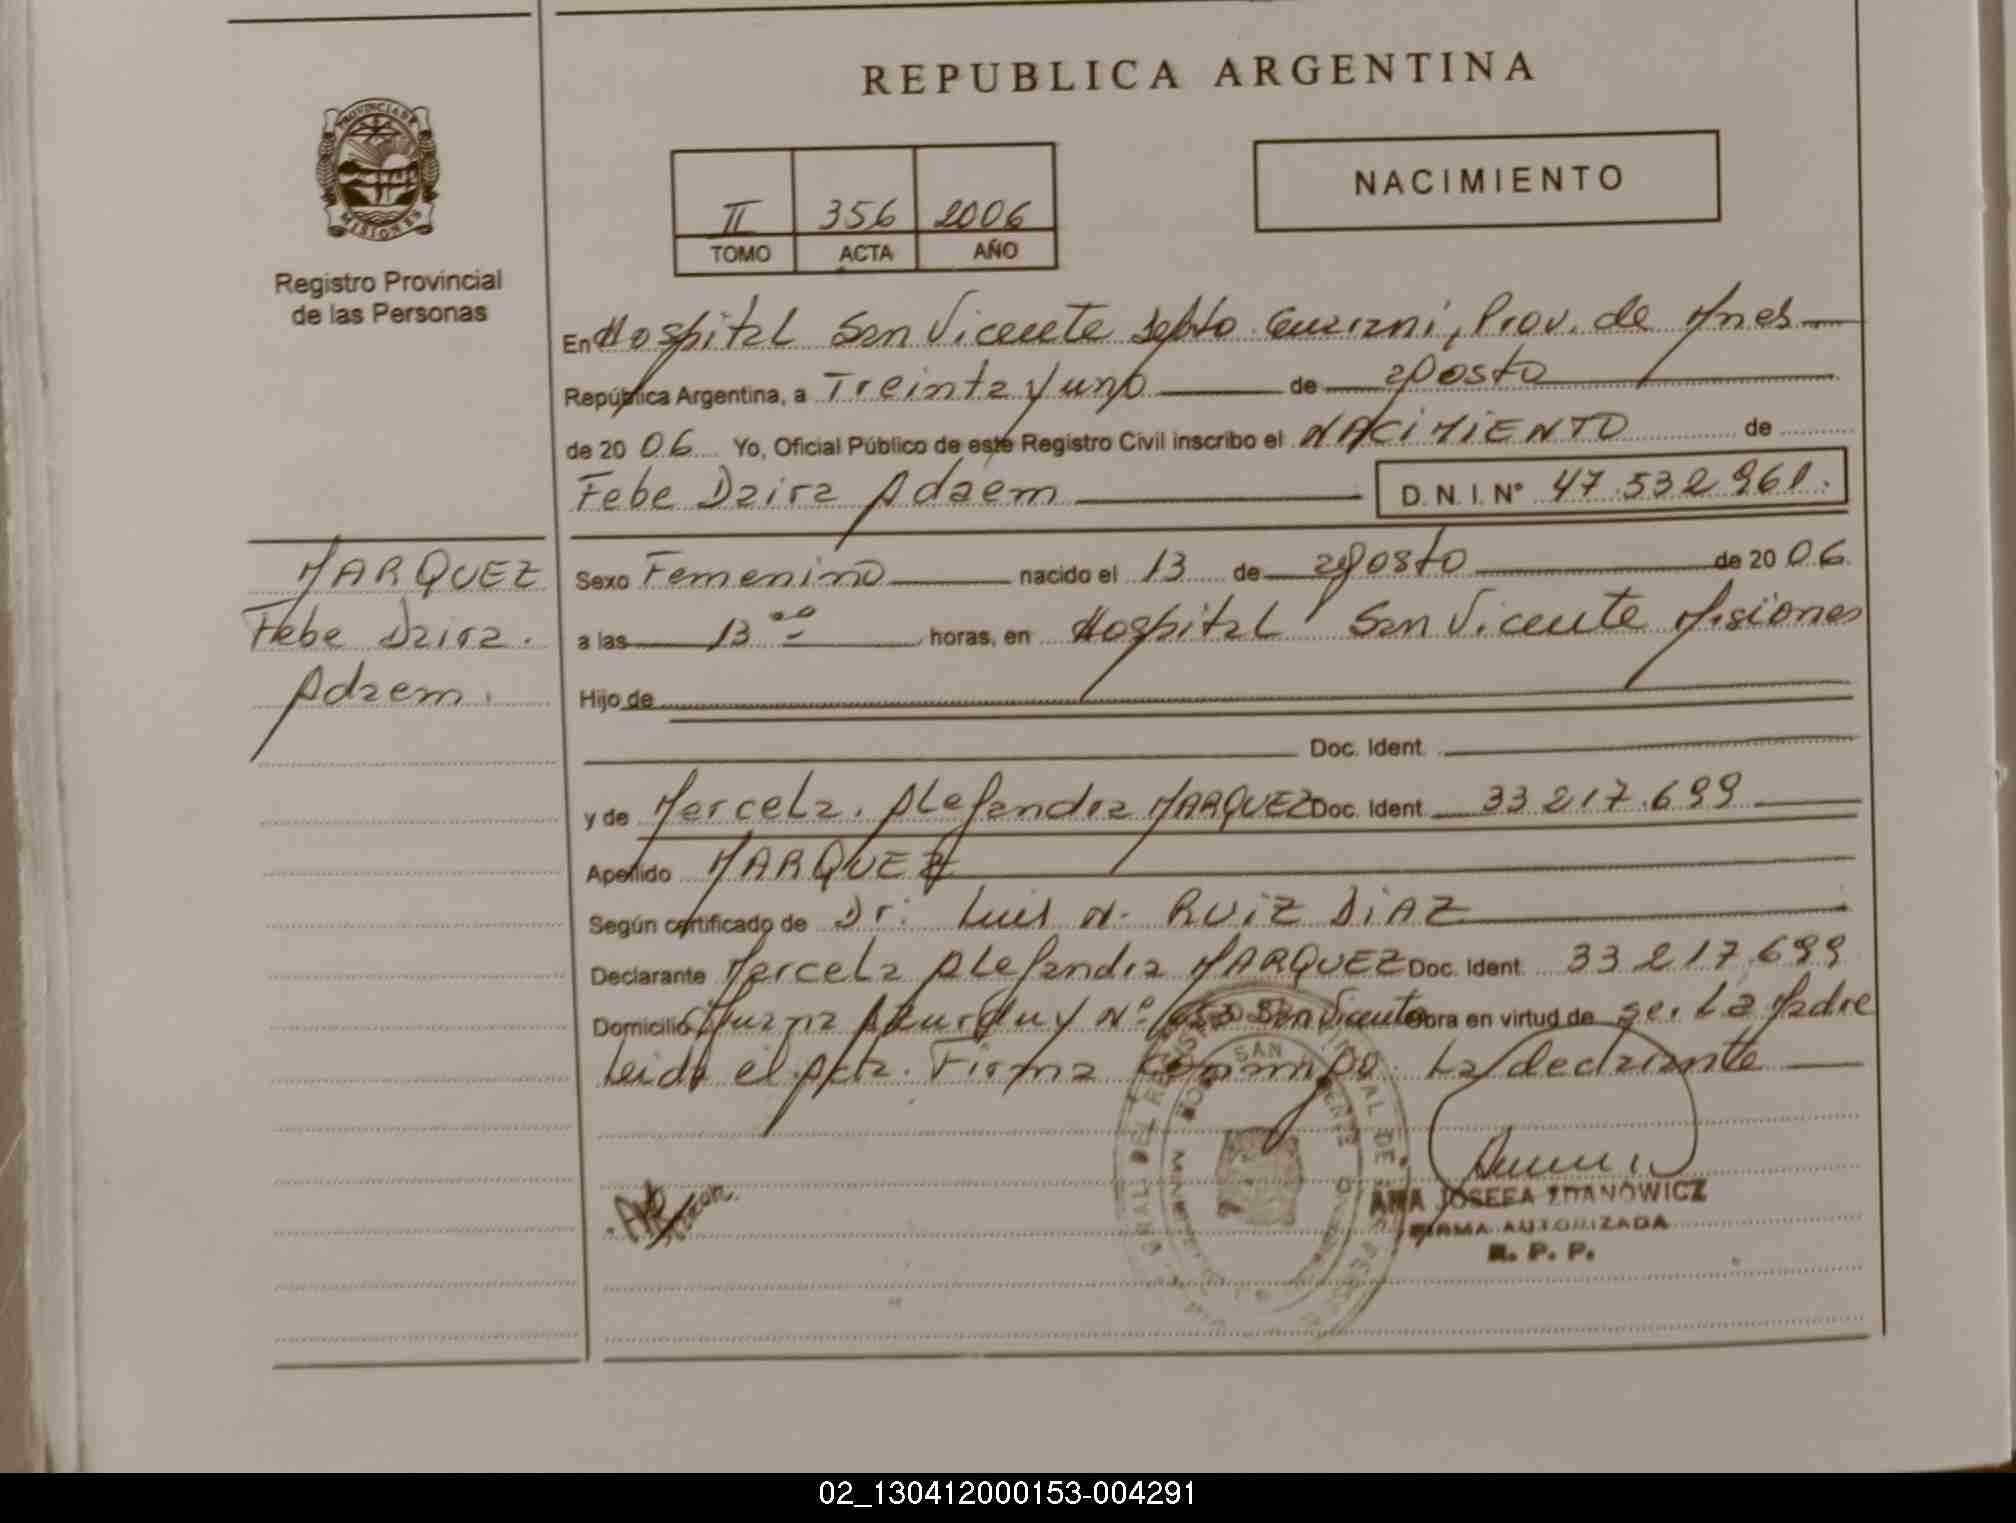 REPUBLICA ARGENTINA
PROVINCIA DE
MISIONES
Registro Provincial
de las Personas
II 356 2006
TOMO ACTA AÑO
NACIMIENTO
En Hospital San Vicente Depto Guarani, Prov. de Mnes
República Argentina, a Treinta y uno de agosto
de 20 06 Yo, Oficial Público de este Registro Civil inscribo el NACIMIENTO de
Febe Daira Adaem D.N.I. Nº 47.532 961.
MARQUEZ
Febe Daira.
Adaem.
Sexo Femenino nacido el 13 de agosto de 20 06.
a las 13 00 horas, en Hospital San Vicente Misiones
Hijo de
Doc. Ident.
y de Marcela. Alejandra MARQUEZ Doc. Ident. 33 217.699
Apellido MARQUEZ
Según certificado de Dr. Luis N. RUIZ DIAZ
Declarante Marcela Alejandra MARQUEZ Doc. Ident. 33 217.699
Domicilio Juana Azurduy Nº San Vicente obra en virtud de ser La Madre
Leida el Acta. Firma conmigo La declarante
SAN
ANA JOSEFA ZDANOWICZ
FIRMA AUTORIZADA
R. P. P.
02_130412000153-004291